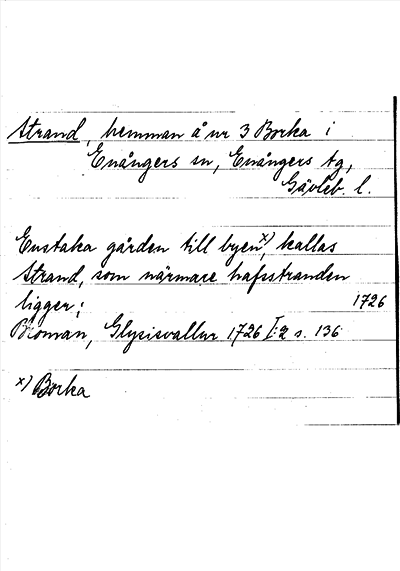 Strand, hemman å nr 3 Borka i
Enångers sn, Enångers tg,
Gävleb. l.
Enstaka gården till byen x), kallas
Strand, som närmare hafsstranden
ligger; 1726
Broman, Glysisvallur 1726 I:2 s. 136
x) Borka